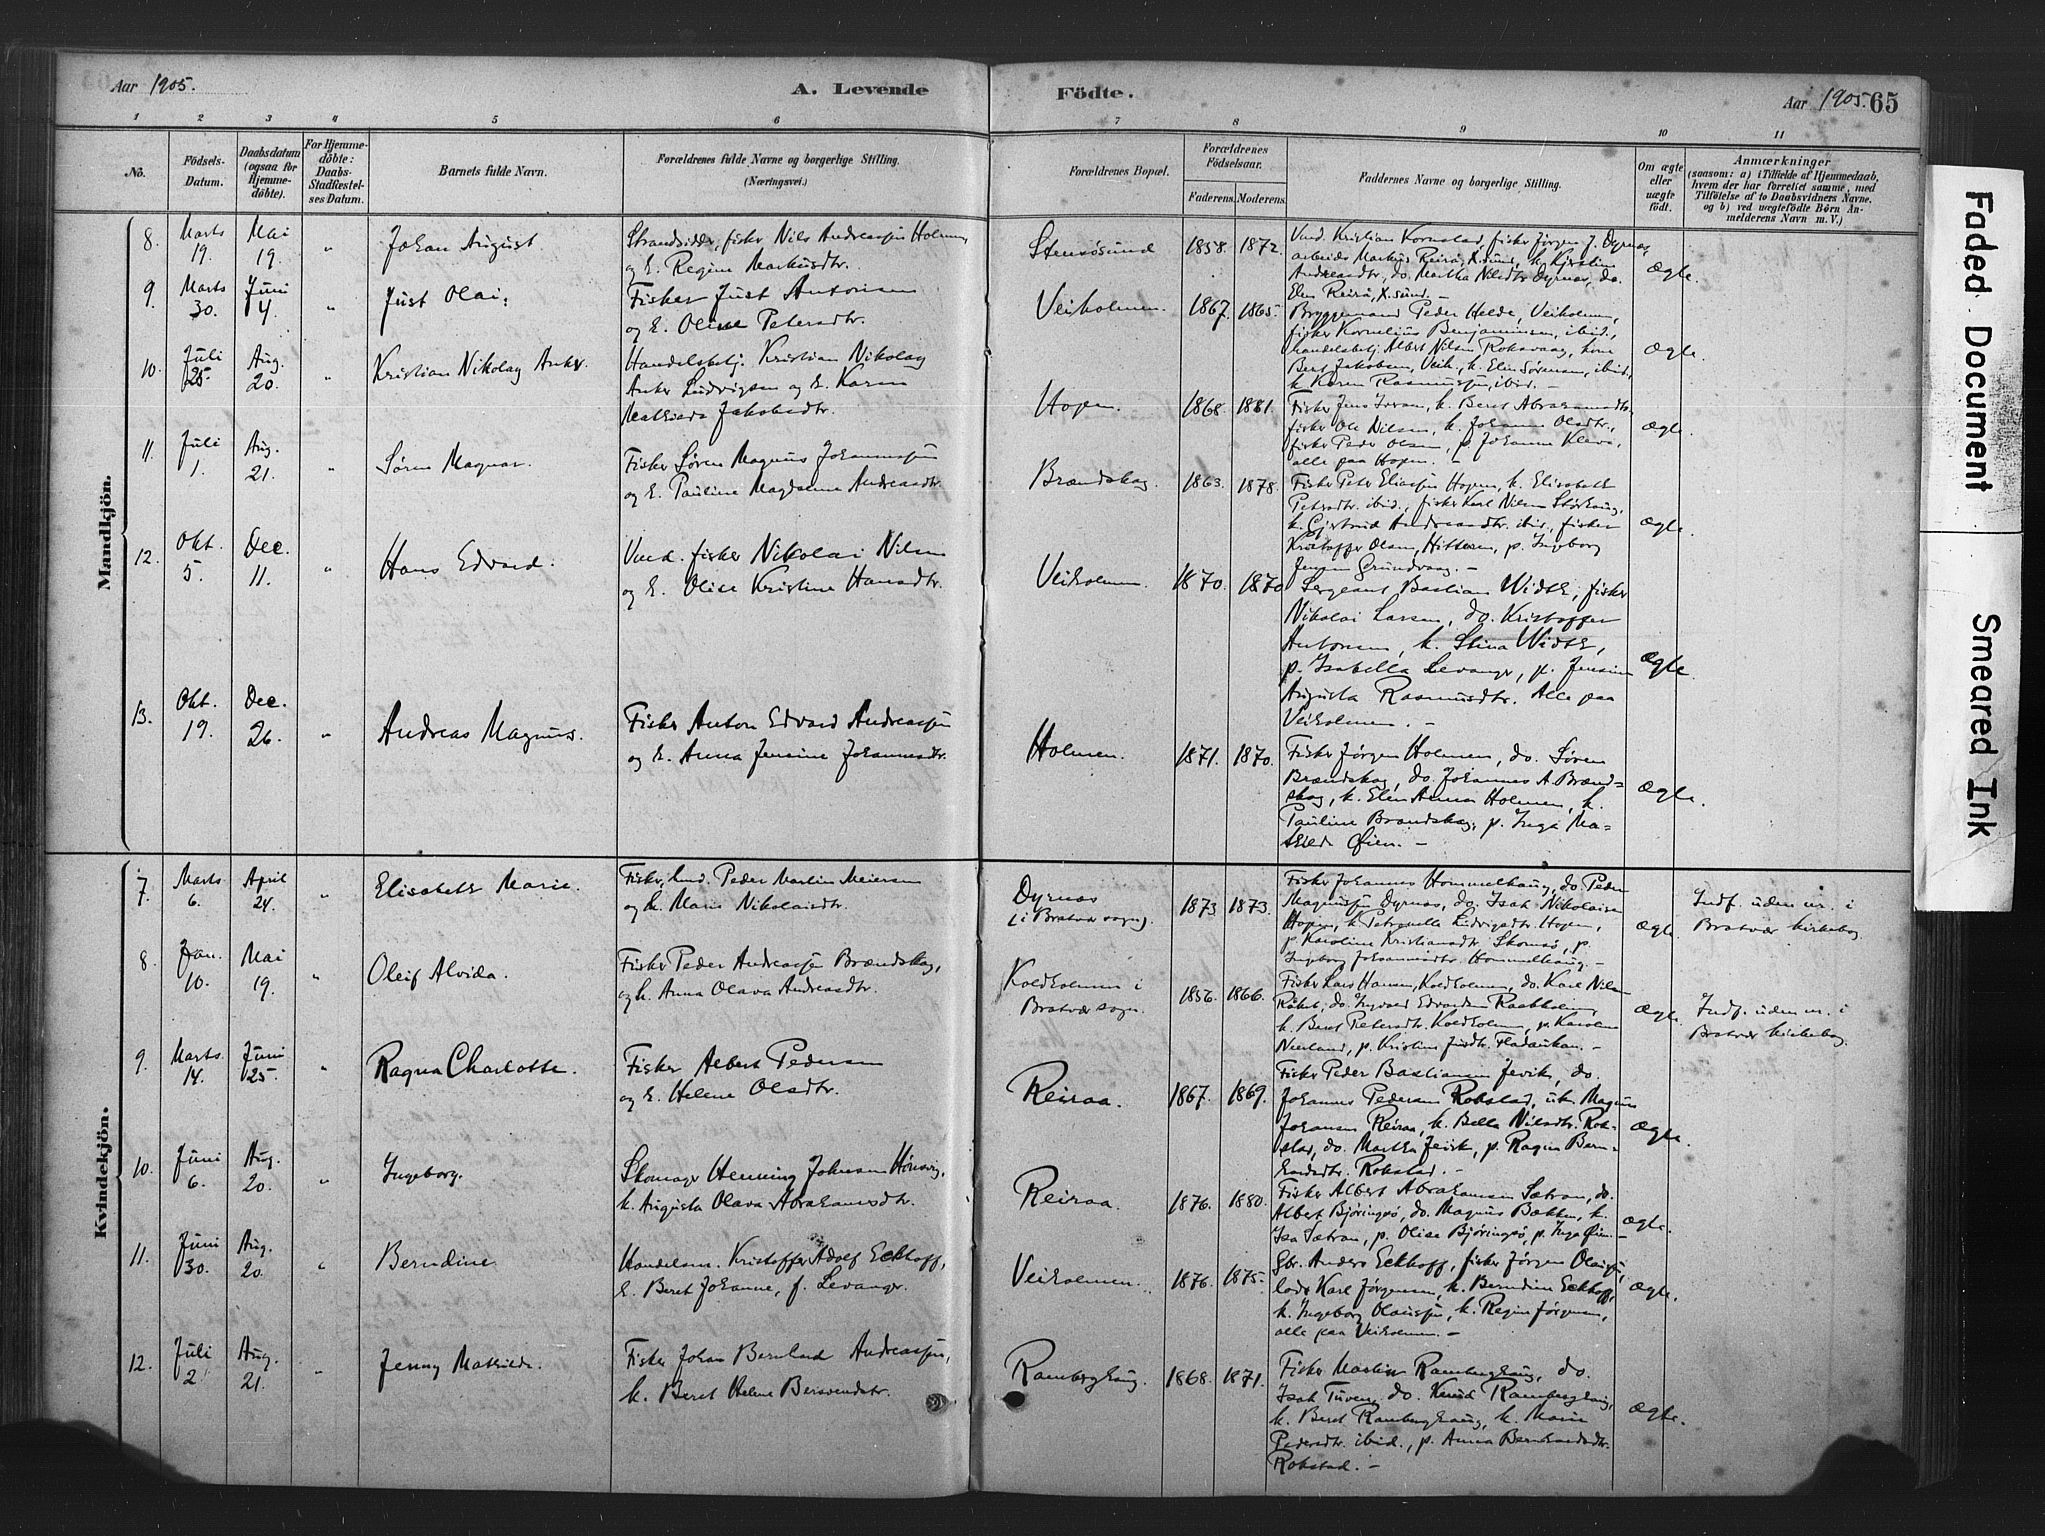 Aar 1905.
A. Levende
Födte.
Aar 1905. 65
1 2 3 4 5 6 7 8 9 10 11
No.
Födsels-Datum.
Daabsdatum (ogsaa for Hjemmedöbte).
For Hjemmedöbte: Daabs-Stadfæstelses Datum.
Barnets fulde Navn.
Forældrenes fulde Navne og borgerlige Stilling.
(Næringsvei.)
Forældrenes Bopæl.
Forældrenes Födselsaar.
Faderens. Moderens.
Faddernes Navne og borgerlige Stilling.
Om ægte eller uægte födt.
Anmærkninger
(saasom: a) i Tilfælde af Hjemmedaab, hvem der har forrettet samme, med Tilföielse af to Daabsvidners Navne, og b) ved uægtefödte Börn Anmelderens Navn m. V.)
Mandkjön.
8. Marts 19. Mai 19. " Johan August. Strandsidder, fisker Nils Andreassen Holmen
og h. Regine Markusdtr. Stensösund 1858. 1872. Ungk. Kristian Kornstad, fisker Jørgen J. Dyrnæs,
arbeider Markus Reirö, X.sund, k. Kjerstine
Andreasdtr., do. Martha Nilsdtr. Dyrnæs, do.
Elen Reirö, X.sund. — ægte.
9. Marts 30. Juni 4. " Just Olai. Fisker Just Antonsen
og h. Oline Petersdtr. Veiholmen. 1867. 1865. Bryggemand Peder Helde, Veiholmen,
fisker Kornelius Benjaminsen, ibid.,
handelsbetj. Albert Nilsen, Roksvaag, kone
Beret Jakobsen, Veih., k. Elen Sörensen, ibid.,
k. Karen Rasmussen, ibid. — ægte.
10. Juli 25. Aug. 20. " Kristian Nikolay Anker. Handelsbetj. Kristian Nikolay
Anker Ludvigsen og h. Karen
Mathea Jakobsdtr. Hopen. 1868. 1881. Fisker Jens Iversen, k. Beret Abrahamsdtr.,
fisker Ole Nilsen, k. Johanna Olsdtr.,
fisker Peder Olsen, p. Johanna
alle paa Hopen. — ægte.
11. Juli 1. Aug. 21. " Sören Magnar. Fisker Sören Magnus Johannessen
og h. Pauline Magdalene Andreasdtr. Brændskag. 1863. 1878. Fisker Peter Eliassen Hopen, k. Elisabeth
Petersdtr. ibid., fisker Karl Nilsen
k. Gjertrud Andreasdtr. ibid., fisker
Kristoffer Olsen, Hitteren, p. Ingeborg
Jensen Grundvaag. — ægte.
12. Okt. 5. Dec. 11. " Hans Edvard. Ungk. fisker Nikolai Nilsen
og h. Olise Kristine Hansdtr. Veiholmen. 1870. 1870 Sergeant Bastian Width, fisker
Nikolai Larsen, do. Kristoffer
Antonsen, k. Stina Width,
p. Isabella Levanger, p. Jensine
Augusta Rasmusdtr. Alle paa
Veiholmen. — ægte.
13. Okt. 19. Dec. 26. " Andreas Magnus. Fisker Anton Edvard Andreassen
og h. Anna Jensine Johannesdtr. Holmen. 1871. 1870. Fisker Jørgen Holmen, do. Sören
Brændskag, do. Johannes A. Brænd-
skag, k. Elen Anna Holmen, k.
Pauline Brandskag, p. Inga Ma-
thilde Øien. — ægte.
Kvindekjön.
7. Marts 6. April 24. " Elisabeth Marie. Fisker, Peder Martin Meiersen
og h. Marie Nikolaisdtr. Dyrnæs
(i Bratvær sogn). 1873 1873. Fisker Johannes Hommelhaug, do. Peder
Magnussen Dyrnæs, do. Isak Nikolaisen
Hopen, k. Petronelle Ludvigsdtr. Hopen,
p. Karoline Kristiansdtr. Skomsö, p.
Ingeborg Johannesdtr. Hommelhaug. — ægte. Indf. uden nr. i
Bratvær kirkebog.
8. Jan. 10. Mai 19. " Oleif Alvida. Fisker Peder Andreassen Brændskag,
og h. Anna Olava Andreasdtr. Koldholmen i
Bratvær sogn. 1856. 1866. Fisker Lars Hansen, Koldholmen, do. Karl Nilsen
do. Ingvard Edvardsen
k. Beret Petersdtr. Koldholmen, p. Karoline
p. Kristine — ægte. Indf. uden nr. i
Bratvær kirkebog.
9. Marts 14. Juni 25. " Ragna Charlotte. Fisker Albert Pedersen
og h. Helene Olsdtr. Reiraa. 1867. 1869. Fisker Peder Bastiansen Jevik, do.
Johannes Pedersen Rokstad, Magnus
Johansen Reiraa, k. Bella Nilsdtr. Rok-
stad, do. Martha Jevik, p. Ragna Bern-
hardsdtr. Rokstad. — ægte.
10. Juni 6. Aug. 20. " Ingeborg. Skomager Henning Johnsen
h. Augusta Olava Abrahamsdtr. Reiraa. 1876. 1880. Fisker Albert Abrahamsen Sætran, do.
Albert Björingsö, do. Magnus Bækken, k.
Isa Sætran, p. Olise Björingsö, p. Inga Øien. — ægte.
11. Juni 30. Aug. 20. " Berndine. Handelsm. Kristoffer Adolf Eckhoff,
h. Beret Johanne, f. Levanger. Veiholmen. 1876. 1875. Gbr. Anders Eckhoff, fisker Jørgen Olaussen,
lods Karl Jørgensen, k. Berndine Eckhoff,
k. Ingeborg Olaussen, k. Regine Jørgensen,
alle paa Veiholmen. — ægte.
12. Juli 2. Aug. 21. " Jenny Mathilde. Fisker Johan Bernhard Andreassen,
h. Beret Helene Berntsdtr. Ramberghaug. 1868. 1871. Fisker Martin Ramberghaug, do.
Isak Tuven, do. Knud Ramberghaug,
k. Beret Ramberghaug, k. Marie
Pedersdtr. ibid., p. Anna Bernhardsdtr.
Rokstad. — ægte.
Faded Document
Smeared Ink